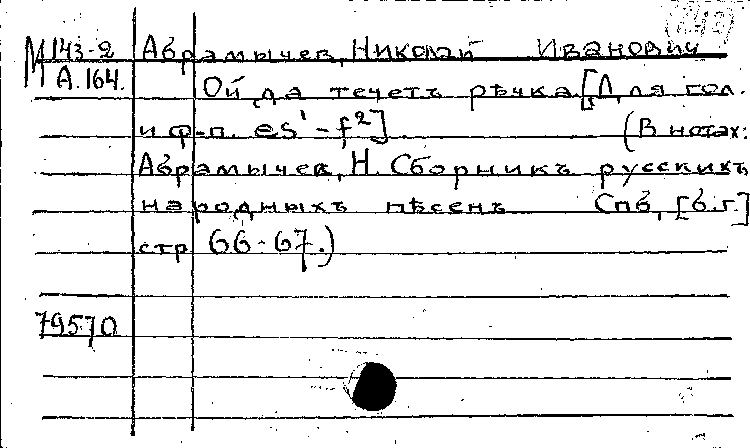 М 143-2 Абрамычев, Николай Иванович
А.164. Ой, да течетъ рѣчка [Для гол.
и ф-п. es¹-f²] (В нотах:
Абрамычев, Н. Сборникъ русскихъ
народныхъ пѣсенъ Спб, [б.г.]
стр 66-67.)
79570